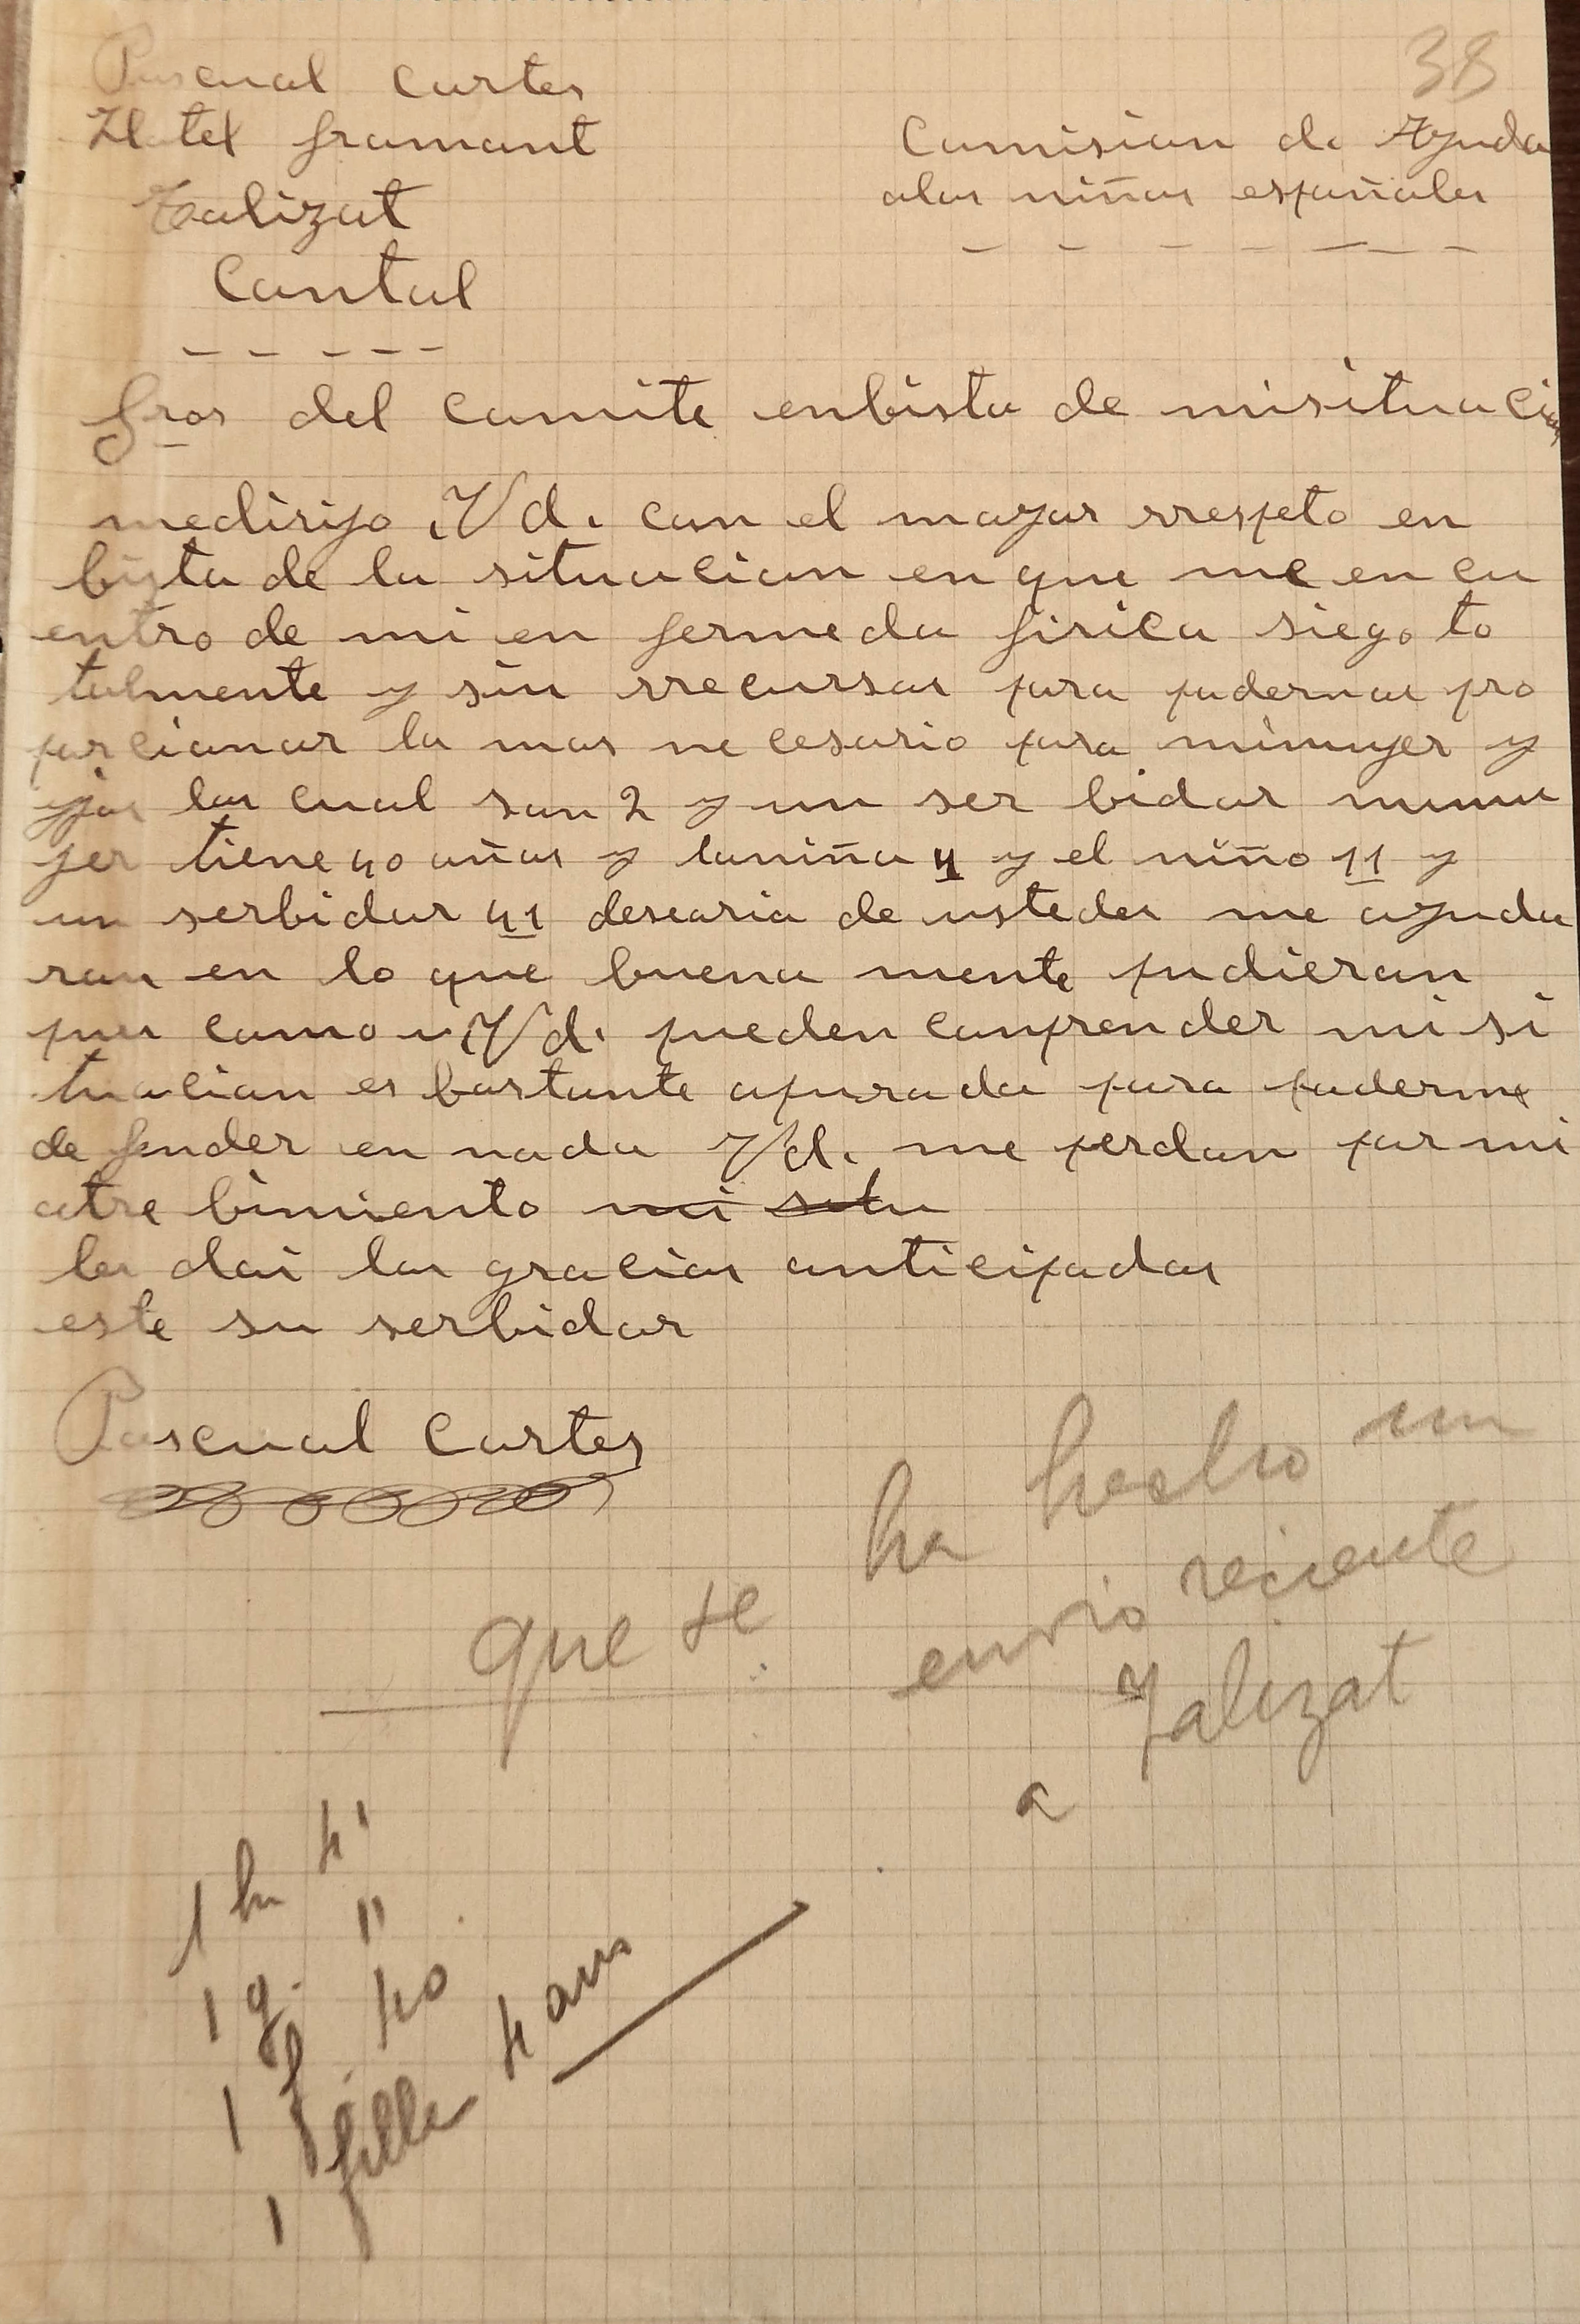 38
Pascual Cortes
Hotel gramont
Talizat
Cantal
Comision de Ayuda
alos niños españoles
Sros del comite enbista de misituacion
medirijo Vd. con el mayor rrespeto en
bista de la situacion en que me en cu
entro de mi en fermeda fisica siego to
talmente y sin rrecursos para podernos pro
porcionar lo mas ne cesario para mimujer y
yjos los cual son 2 y un ser bidor mimu
jer tiene 40 años y laniña 4 y el niño 11 y
un serbidor 41 desearia de ustedes me ayuda
ran en lo que buena mente pudieran
pues como Vd. pueden conprender mi si
tuacion es bastante apurada para poderme
de fender en nada Vd. me perdon por mi
atre bimiento mi situ
les doi las gracias anticipadas
este su serbidor
Pascual Cortes
que se ha hecho un
envio reciente
a Talizat
1 h 41
1 g. 11
1 f. 40
1 fille 4 ans